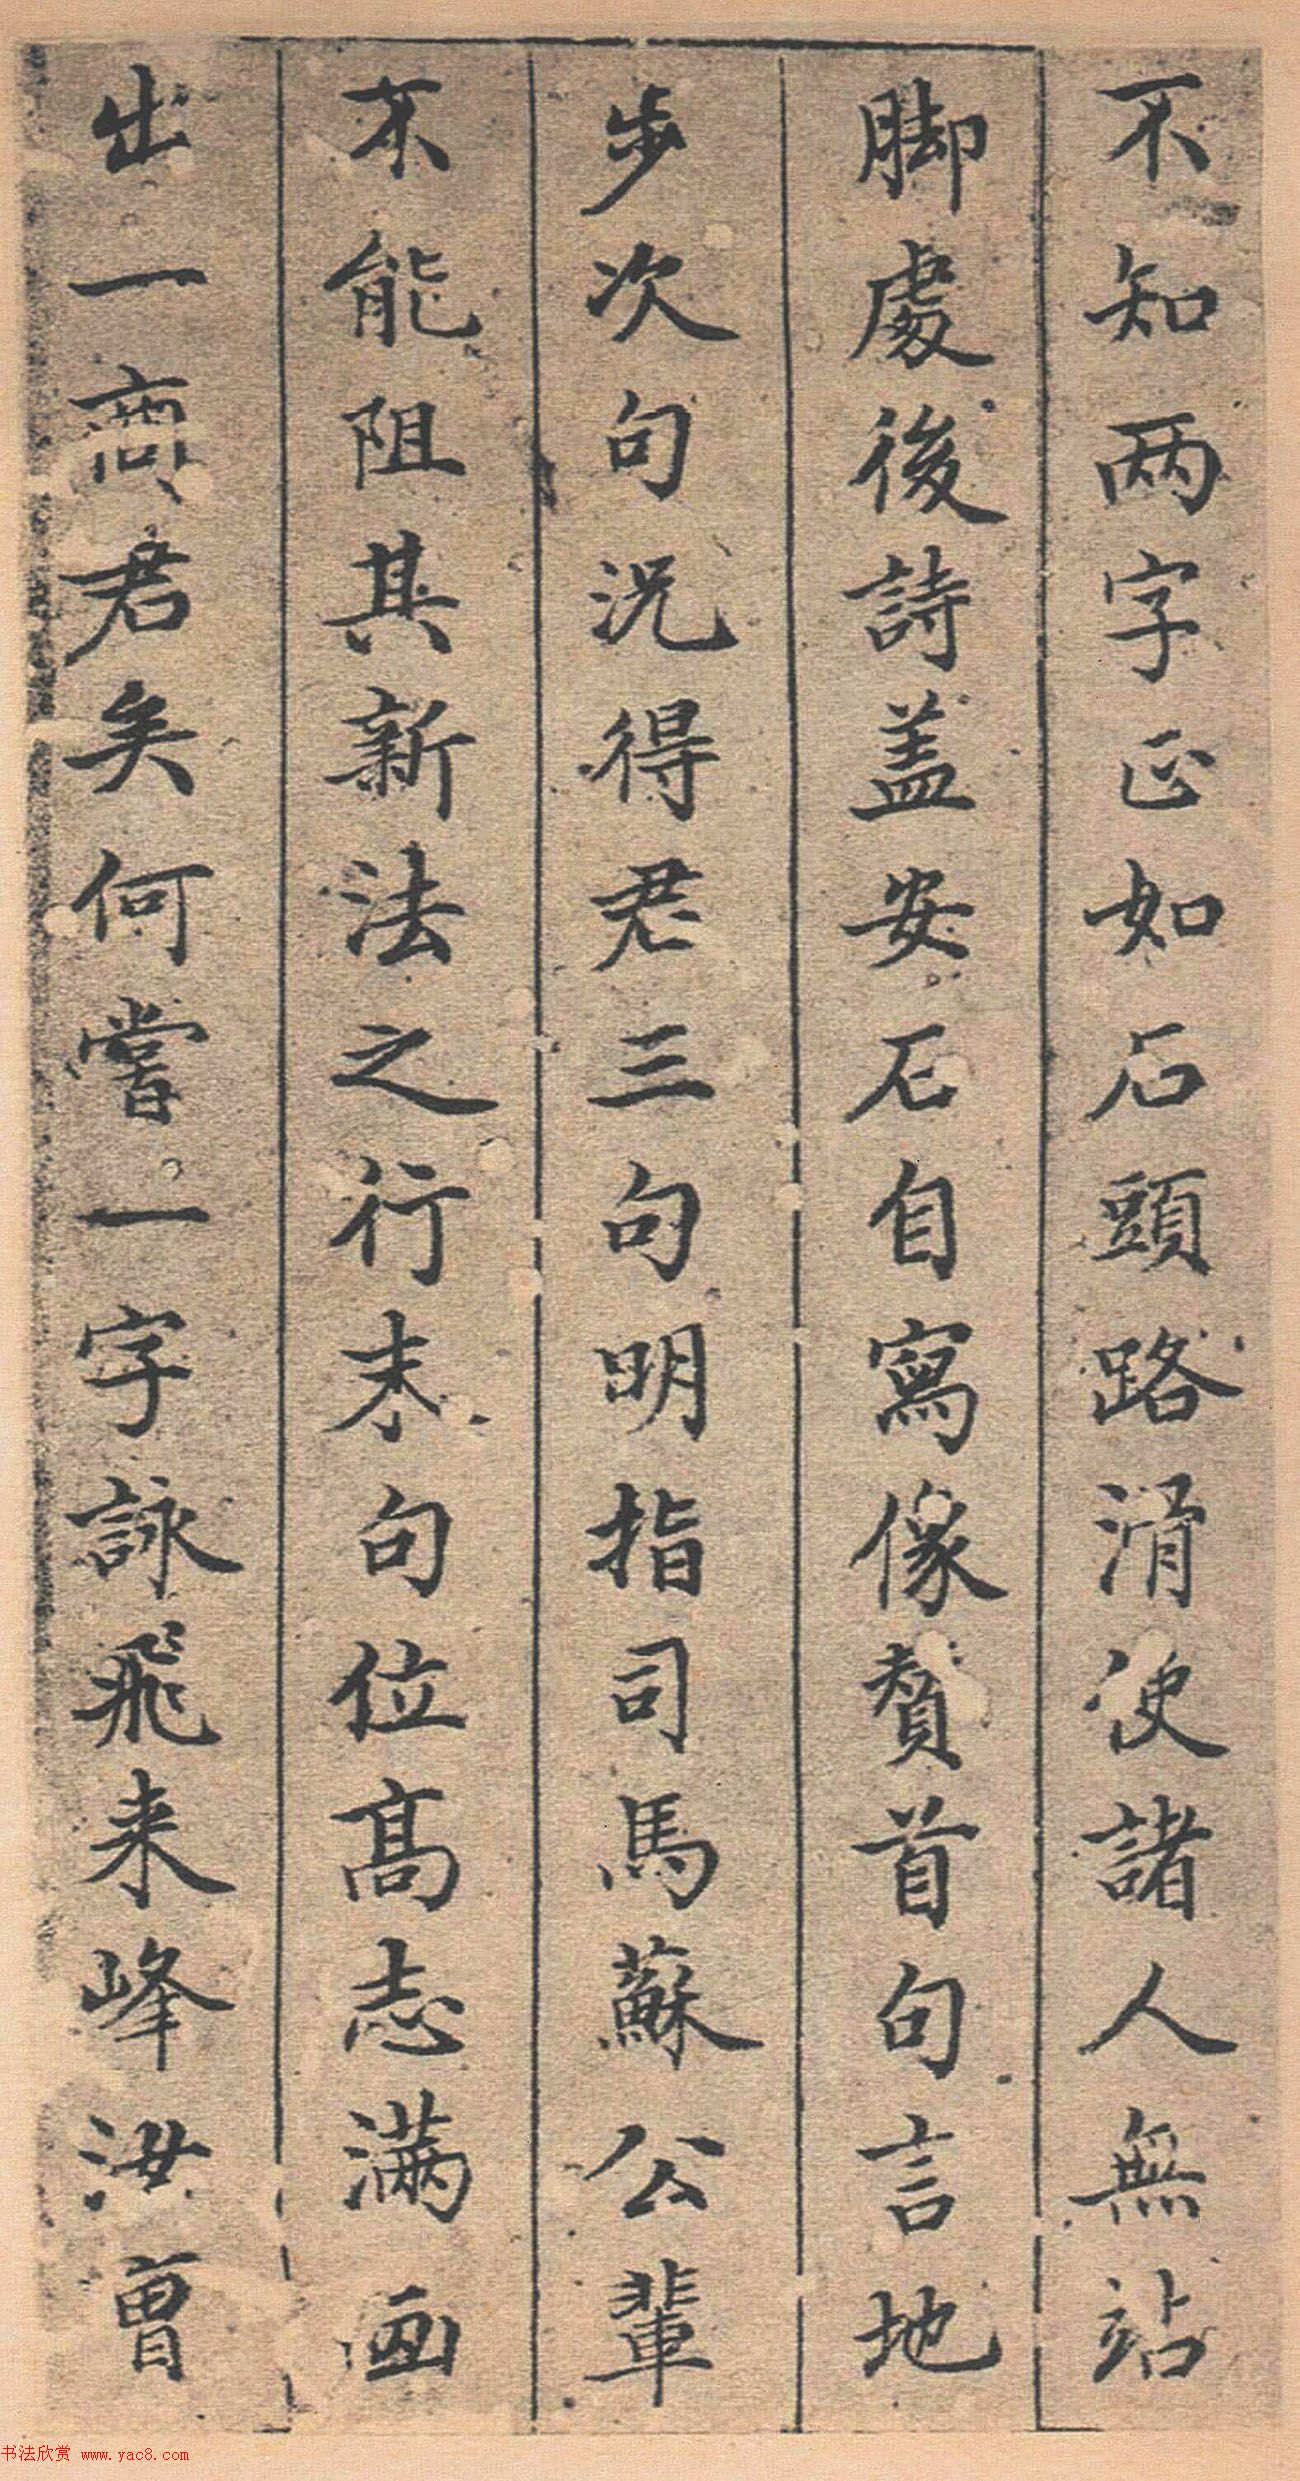 不知两字正如石頭路滑使諸人無站
脚處後詩盖安石自寫像賛首句言地
步次句況得君三句明指司馬蘇公輩
不能阻其新法之行末句位高志满画
出一商君矣何嘗一字詠飛来峰汝曾
书法欣赏 www.yac8.com